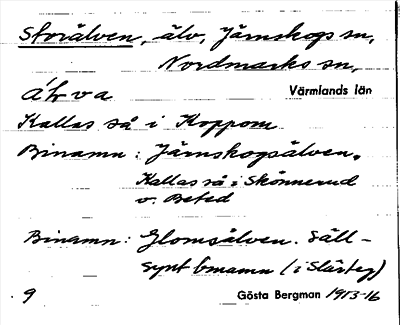 Storälven, älv, Järnskogs sn,
Nordmarks sn,
Värmlands län
Kallas så i Koppom
Binamn: Järnskogsälven.
Kallas så i Skönnerud
o. Beted
Binamn: Glomsälven. Säll-
synt bmamn (i Slärteg)
9 Gösta Bergman 1913-16